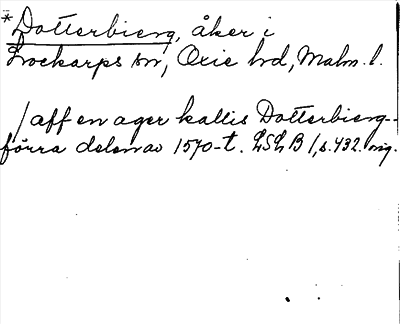 *Dotterbierg, åker i
Lockarps sn, Oxie hd, Malm. l.
/ aff en ager kallis Dotterbierg -
förra delen av 1570-t. LSLB 1, s. 432. orig.